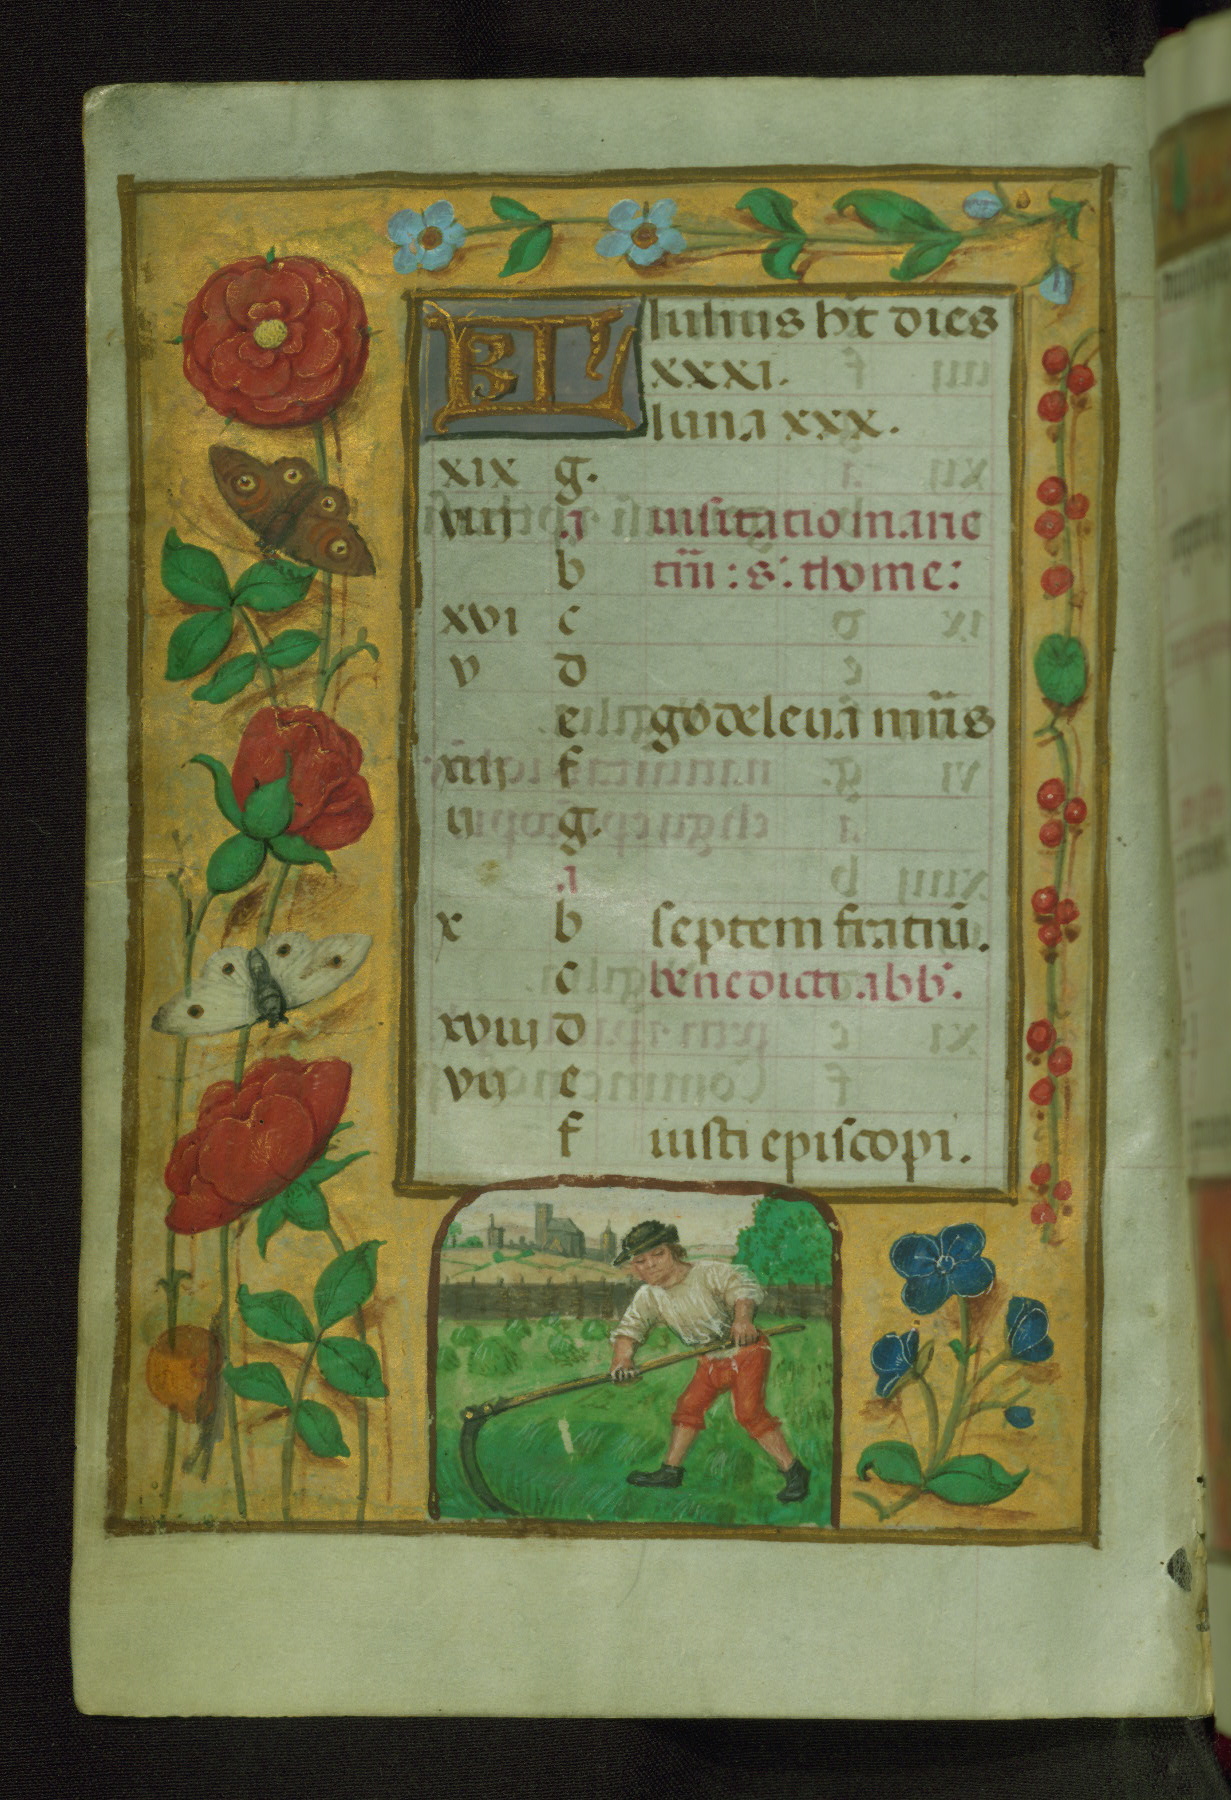 KL Iulius ht dies
xxxi.
luna xxx.
xix g.
viij a visitatio marie
b trm : s. thome:
xvi c
v d
e godeleua mris
xiij f
ij g.
a
x b septem fratrum.
c benedicti abb.
xviij d
vij e
f iusti episcopi.